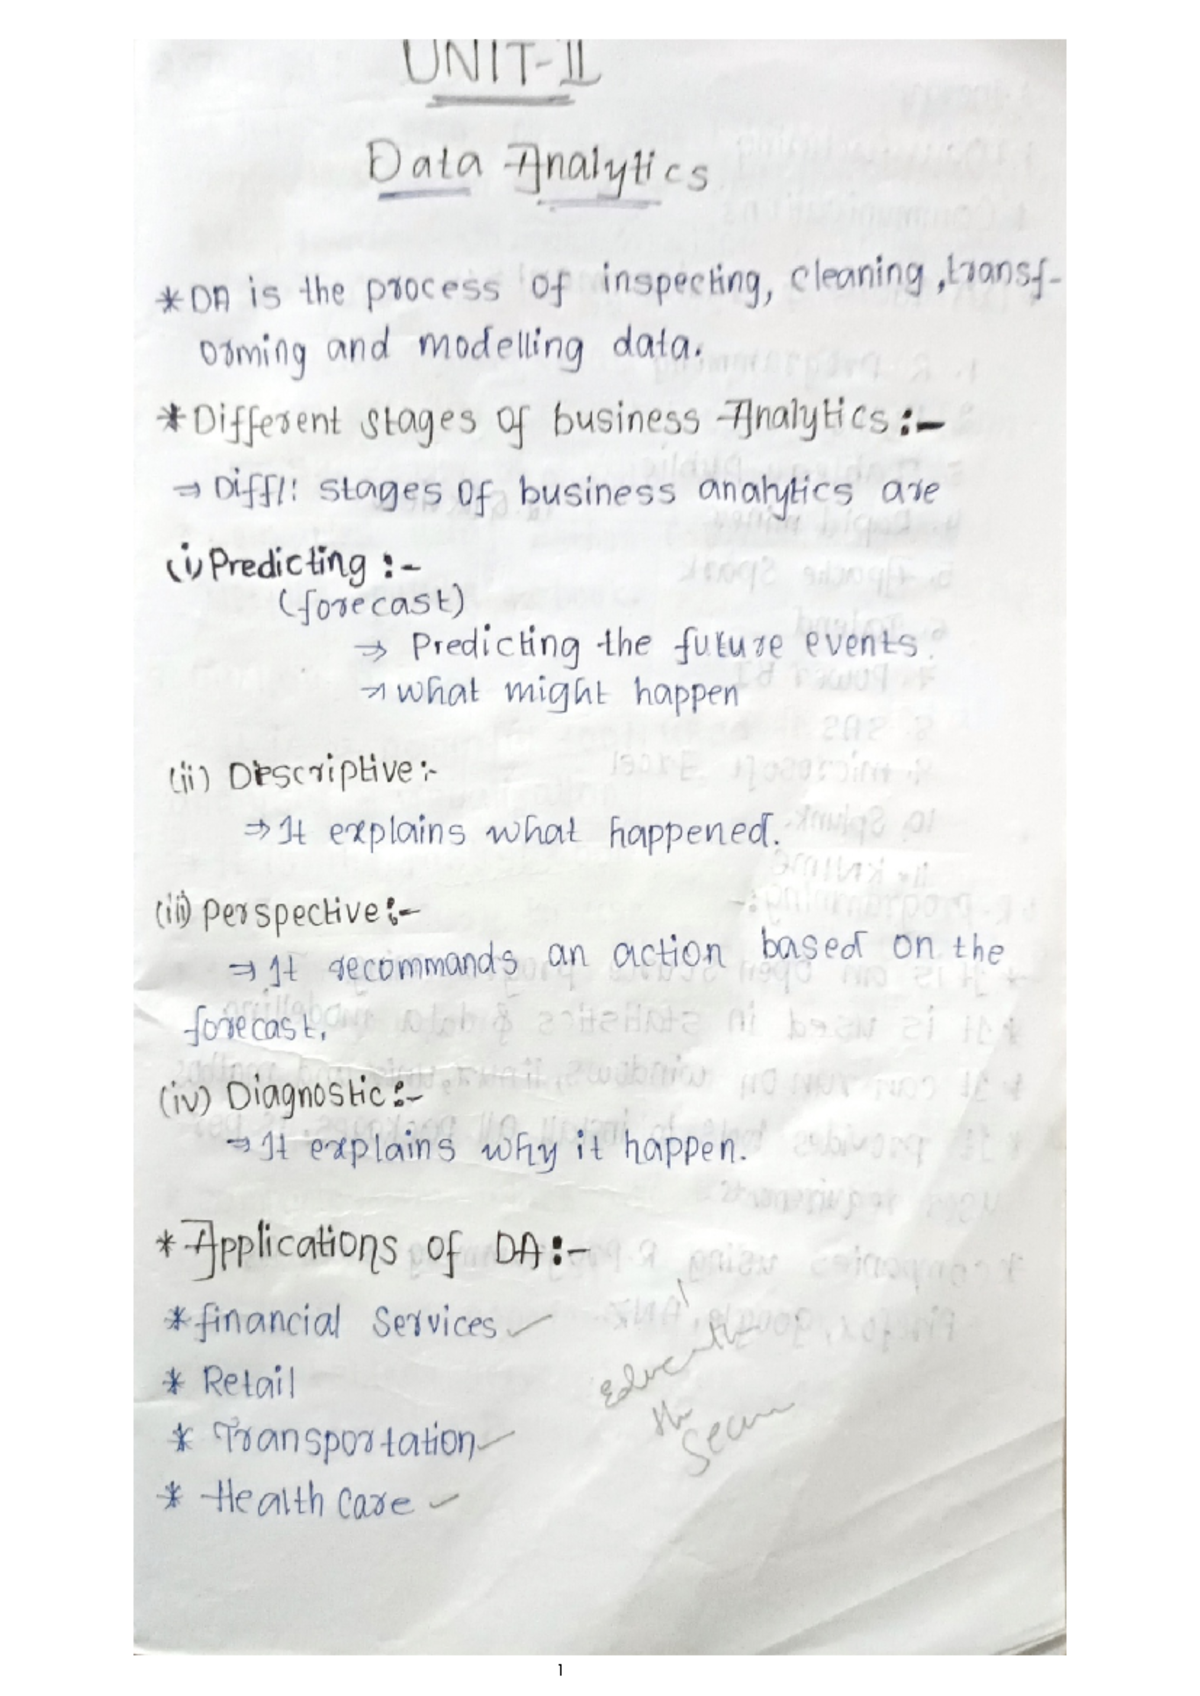 UNIT-II
Data Analytics
* DA is the process of inspecting, cleaning, transf-
orming and modelling data.
* Different stages of business Analytics :-
⇒ Diff: stages of business analytics are
(i) Predicting :-
(forecast)
⇒ Predicting the future events.
→ what might happen
(ii) Descriptive :-
⇒ It explains what happened.
(iii) perspective :-
⇒ It recommands an action based on the
forecast.
(iv) Diagnostic :-
⇒ It explains why it happen.
* Applications of DA :-
* financial Services ✓
* Retail
* Transportation ✓
* Health care ✓
1